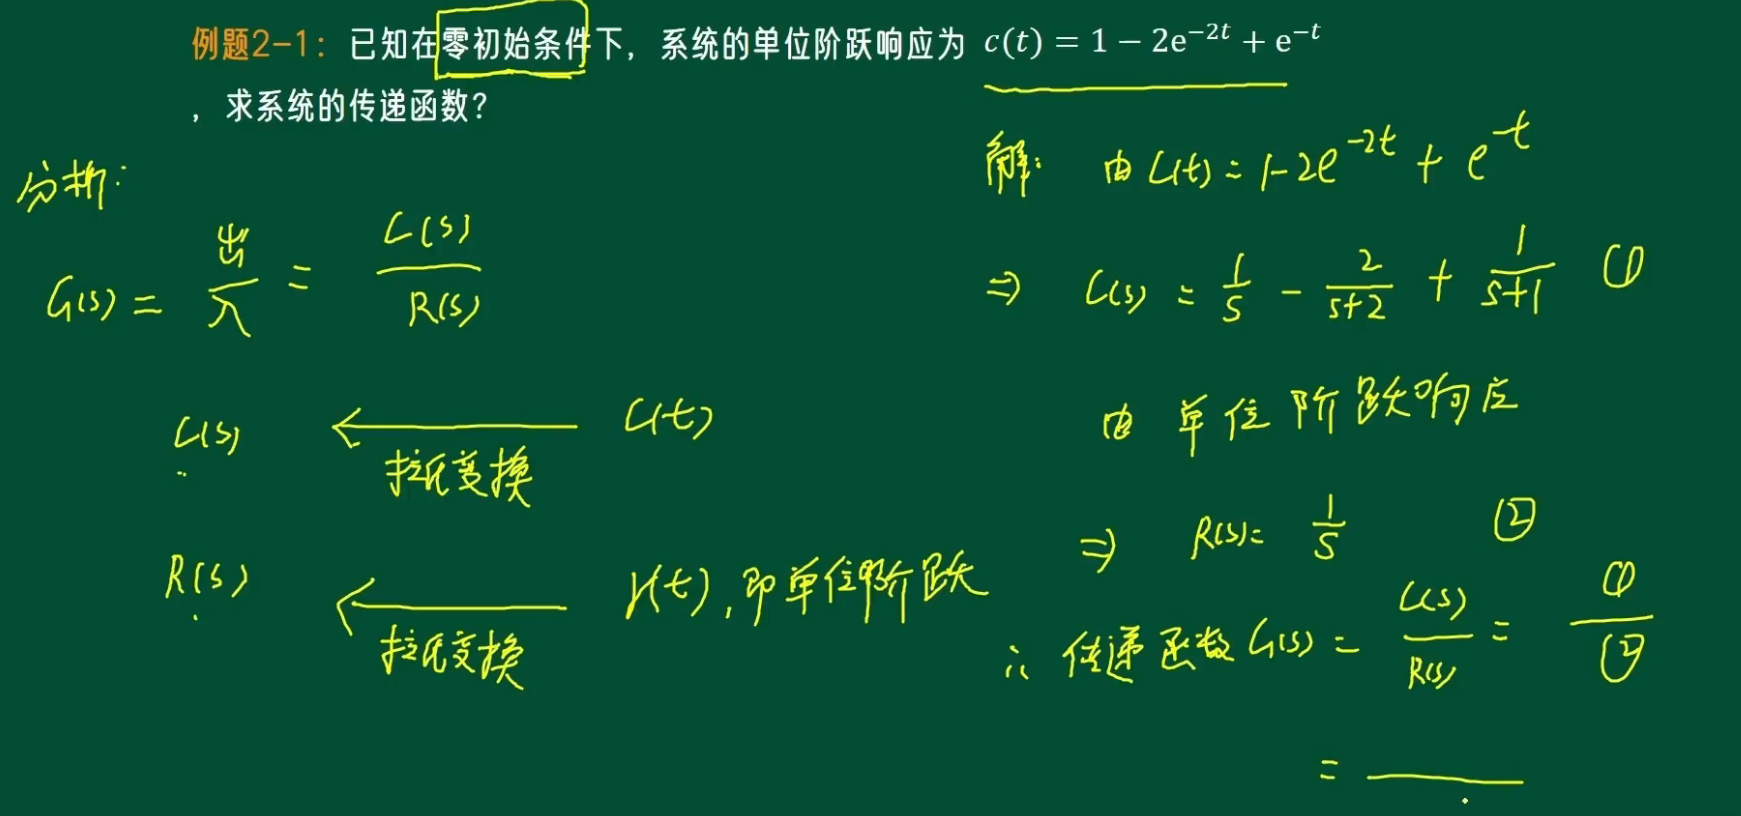 例题2-1：已知在零初始条件下，系统的单位阶跃响应为 c(t) = 1 − 2e⁻²ᵗ + e⁻ᵗ
，求系统的传递函数？
分析：
G(s) = 出/入 = C(s)/R(s)
C(s) ← 拉氏变换 C(t)
R(s) ← 拉氏变换 r(t), 即单位阶跃
解： 由 C(t) = 1-2e⁻²ᵗ + e⁻ᵗ
⇒ C(s) = 1/s - 2/(s+2) + 1/(s+1) ①
由 单位阶跃响应
⇒ R(s) = 1/s ②
∴ 传递函数 G(s) = C(s)/R(s) = ①/②
=